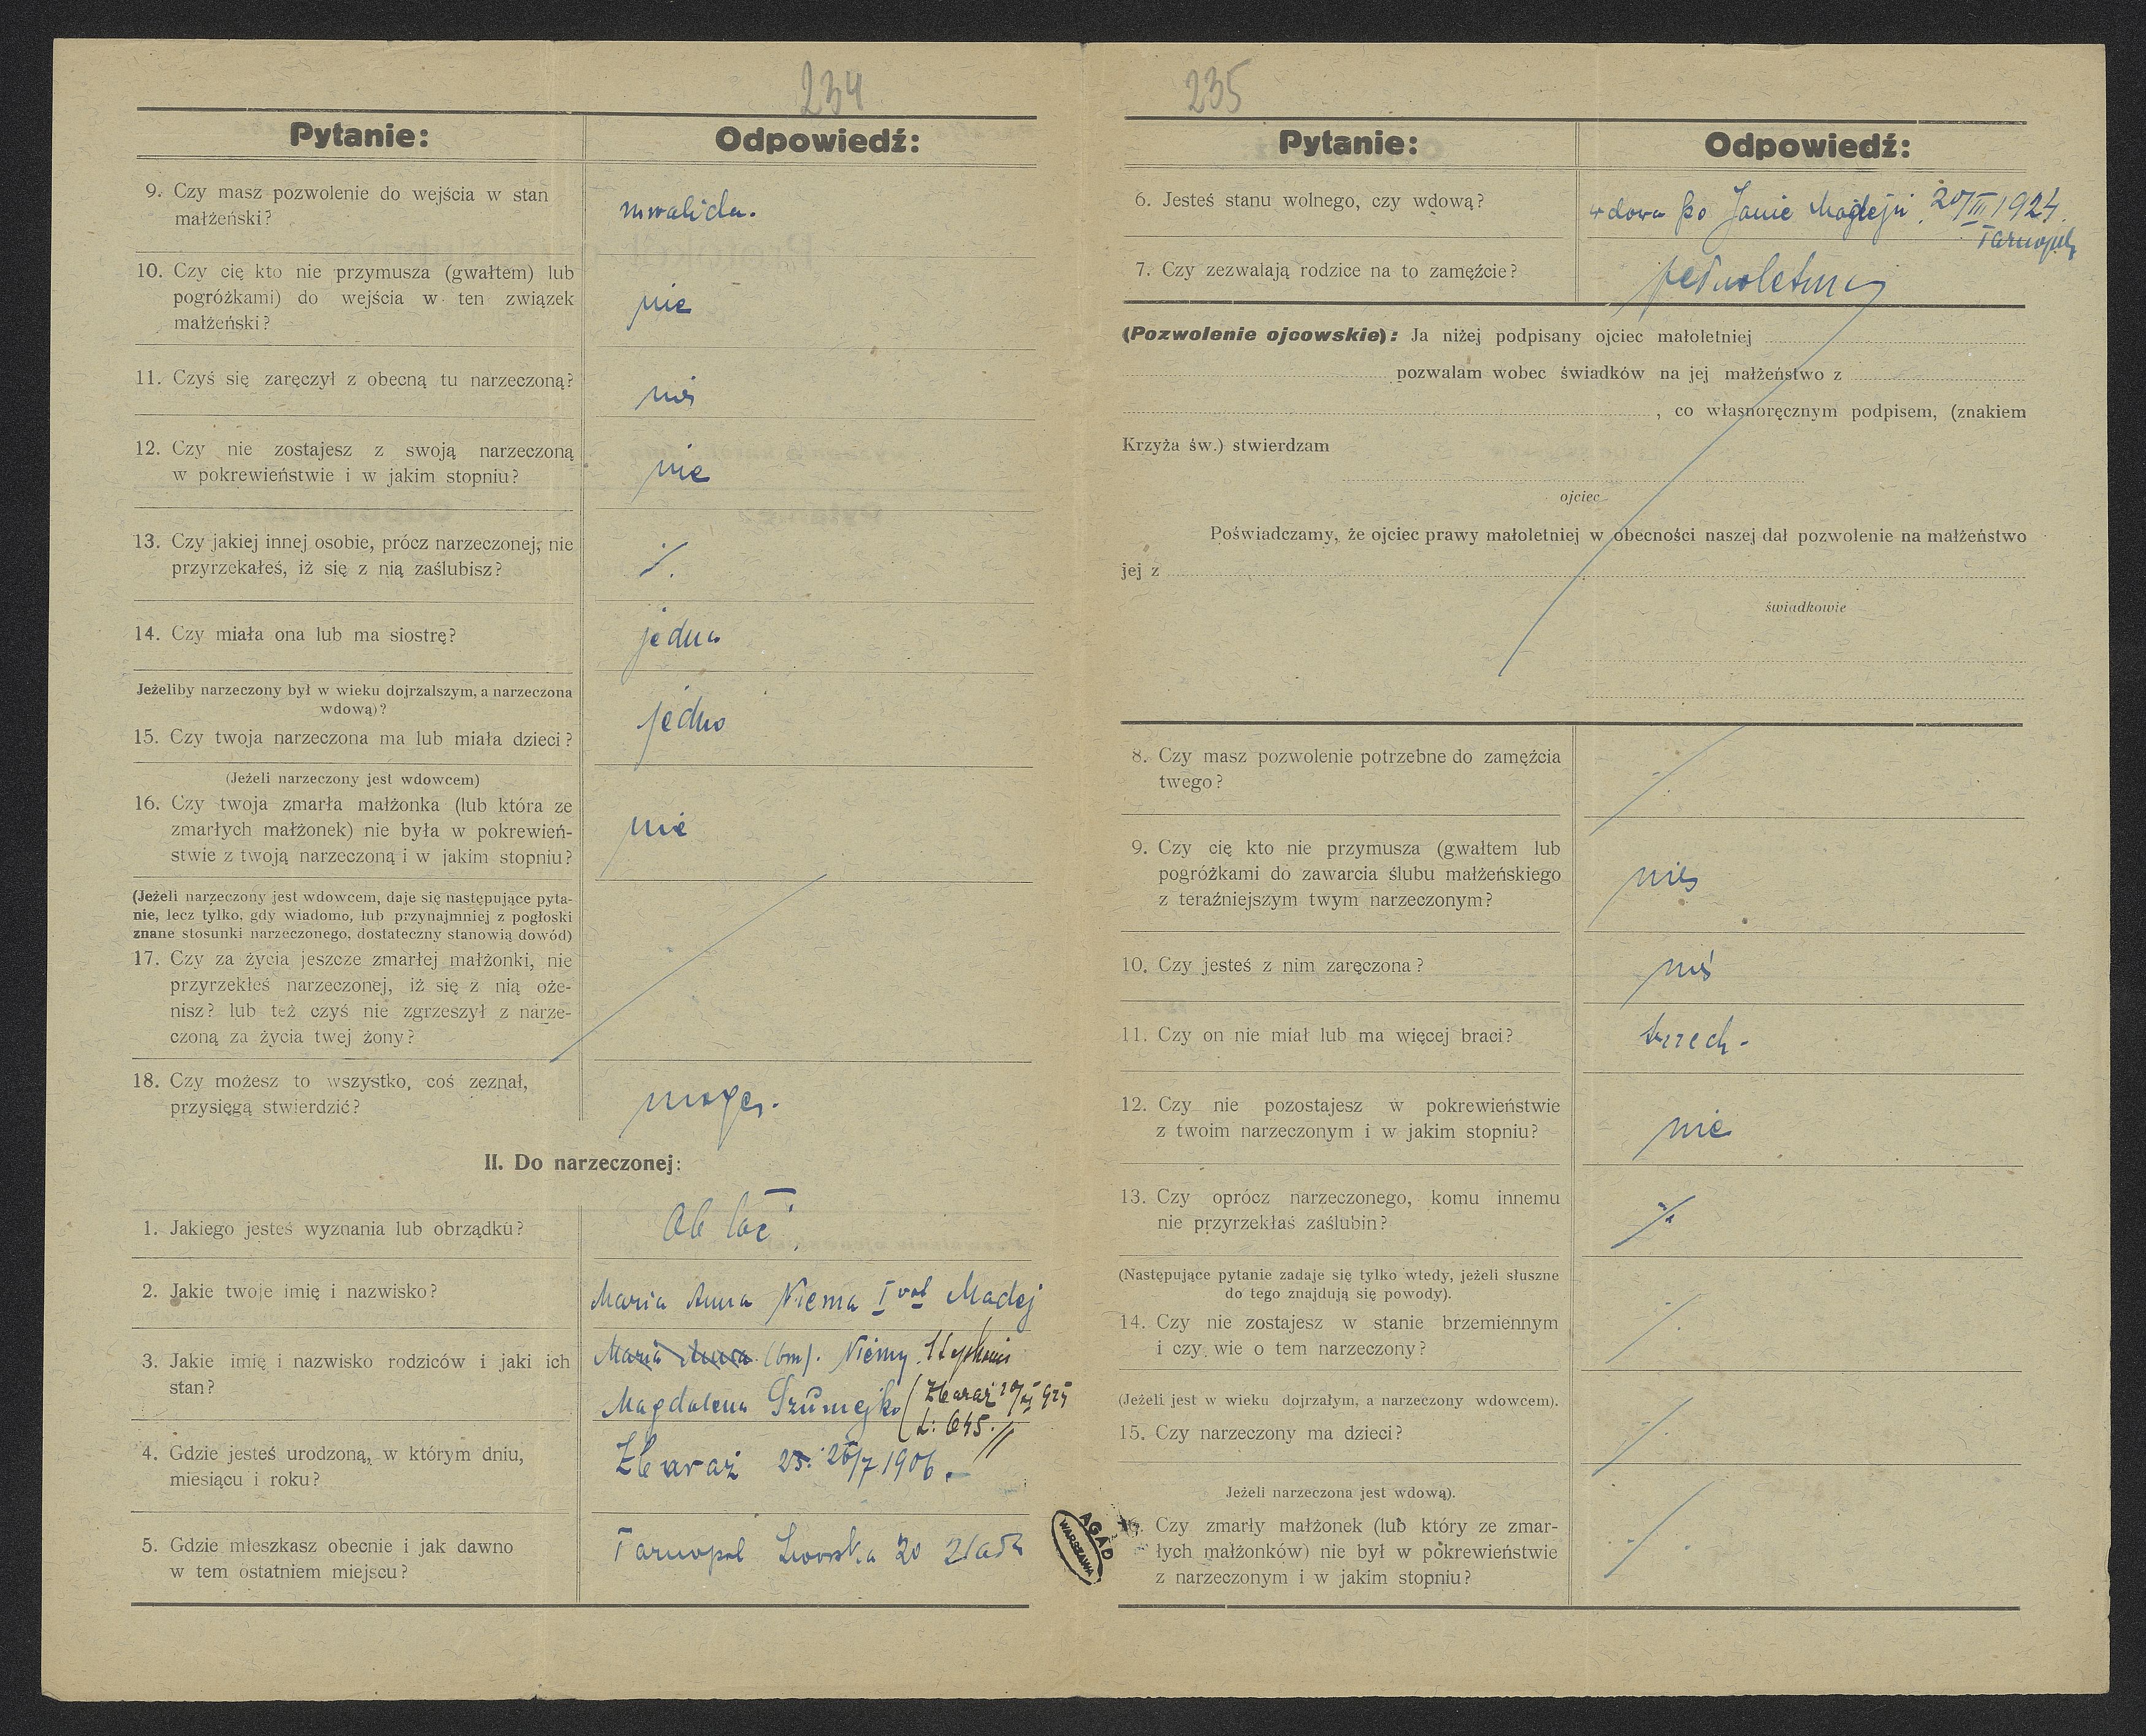 234
Pytanie:
Odpowiedź:
9. Czy masz pozwolenie do wejścia w stan
małżeński?
inwalida.
10. Czy cię kto nie przymusza (gwałtem) lub
pogróżkami) do wejścia w ten związek
małżeński?
nie
11. Czyś się zaręczył z obecną tu narzeczoną?
nie
12. Czy nie zostajesz z swoją narzeczoną
w pokrewieństwie i w jakim stopniu?
nie
13. Czy jakiej innej osobie, prócz narzeczonej, nie
przyrzekałeś, iż się z nią zaślubisz?
14. Czy miała ona lub ma siostrę?
jedna
Jeżeliby narzeczony był w wieku dojrzalszym, a narzeczona
wdową)?
15. Czy twoja narzeczona ma lub miała dzieci?
jedno
(Jeżeli narzeczony jest wdowcem)
16. Czy twoja zmarła małżonka (lub która ze
zmarłych małżonek) nie była w pokrewień-
stwie z twoją narzeczoną i w jakim stopniu?
nie
(Jeżeli narzeczony jest wdowcem, daje się następujące pyta-
nie, lecz tylko, gdy wiadomo, lub przynajmniej z pogłoski
znane stosunki narzeczonego, dostateczny stanowią dowód)
17. Czy za życia jeszcze zmarłej małżonki, nie
przyrzekłeś narzeczonej, iż się z nią oże-
nisz? lub też czyś nie zgrzeszył z narze-
czoną za życia twej żony?
18. Czy możesz to wszystko, coś zeznał,
przysięgą stwierdzić?
mogę.
II. Do narzeczonej:
1. Jakiego jesteś wyznania lub obrządku?
Ob łać
2. Jakie twoje imię i nazwisko?
Maria Anna Niema I vol Madej
3. Jakie imię i nazwisko rodziców i jaki ich
stan?
Maria Anna Niemy
Magdalena Szumejko (Zbaraż
L: 645.
4. Gdzie jesteś urodzoną, w którym dniu,
miesiącu i roku?
Zbaraż 25/7 1906.
5. Gdzie mieszkasz obecnie i jak dawno
w tem ostatniem miejscu?
Tarnopol Lwowska 20 2 lata
AGAD
WARSZAWA
235
Pytanie:
Odpowiedź:
6. Jesteś stanu wolnego, czy wdową?
wdowa po Janie Madeju 20/III 1924.
Tarnopol
7. Czy zezwalają rodzice na to zamęźcie?
pełnoletnia
(Pozwolenie ojcowskie): Ja niżej podpisany ojciec małoletniej
pozwalam wobec świadków na jej małżeństwo z
, co własnoręcznym podpisem, (znakiem
Krzyża św.) stwierdzam
ojciec
Poświadczamy, że ojciec prawy małoletniej w obecności naszej dał pozwolenie na małżeństwo
jej z
świadkowie
8. Czy masz pozwolenie potrzebne do zamęźcia
twego?
9. Czy cię kto nie przymusza (gwałtem lub
pogróżkami do zawarcia ślubu małżeńskiego
z teraźniejszym twym narzeczonym?
nie
10. Czy jesteś z nim zaręczona?
nie
11. Czy on nie miał lub ma więcej braci?
trzech.
12. Czy nie pozostajesz w pokrewieństwie
z twoim narzeczonym i w jakim stopniu?
nie
13. Czy oprócz narzeczonego, komu innemu
nie przyrzekłaś zaślubin?
(Następujące pytanie zadaje się tylko wtedy, jeżeli słuszne
do tego znajdują się powody).
14. Czy nie zostajesz w stanie brzemiennym
i czy wie o tem narzeczony?
(Jeżeli jest w wieku dojrzałym, a narzeczony wdowcem).
15. Czy narzeczony ma dzieci?
Jeżeli narzeczona jest wdową).
Czy zmarły małżonek (lub który ze zmar-
łych małżonków) nie był w pokrewieństwie
z narzeczonym i w jakim stopniu?